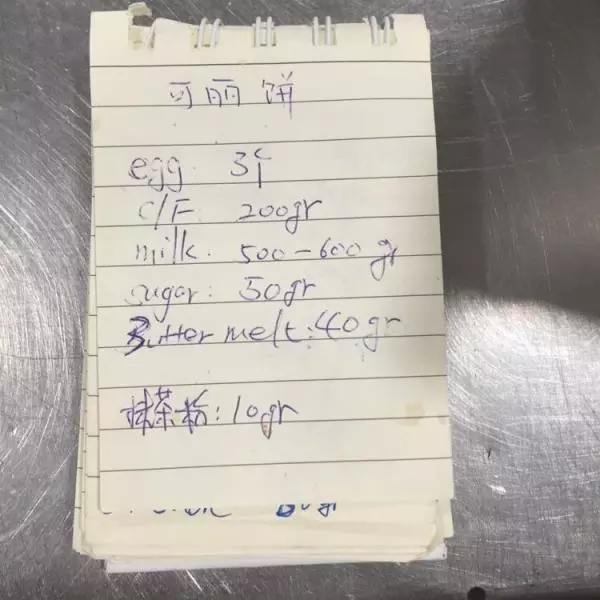 可丽饼
egg 3个
C/F 200gr
milk. 500-600gr
sugar: 50gr
Butter melt: 40gr
抹茶粉: 10gr